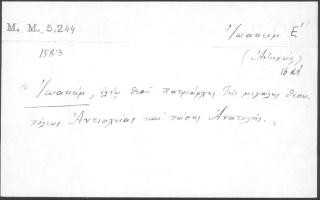 M. M. 5.244
Ἰωακεὶμ Ε'
1583
(Ἀντιοχείας)
16 αἰ.
"Ἰωακεὶμ, ἐλέῳ θεοῦ πατριάρχης τῆς μεγάλης θεου
πόλεως Ἀντιοχείας καὶ πάσης Ἀνατολῆς."